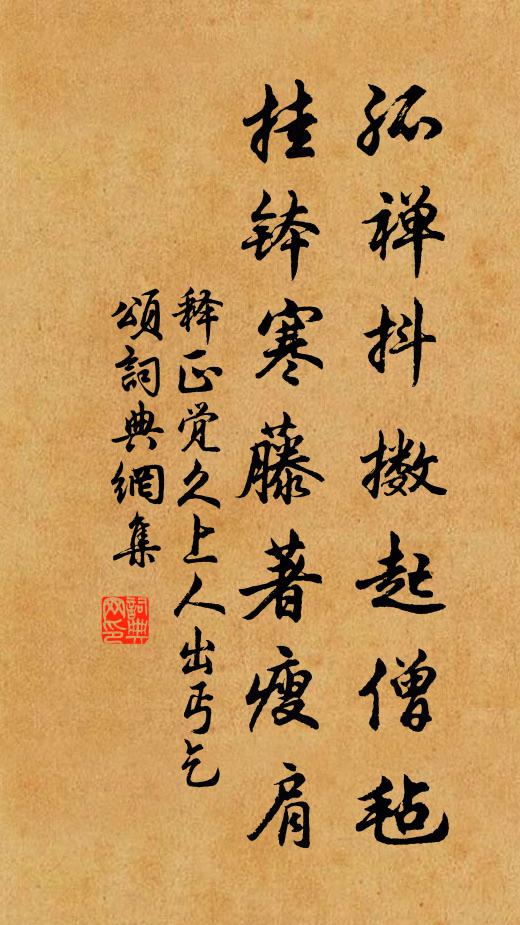 孤禅抖擞起僧毡
挂钵寒藤著瘦肩
释正觉久上人出丐乞
頌詞典網集
詞典網印